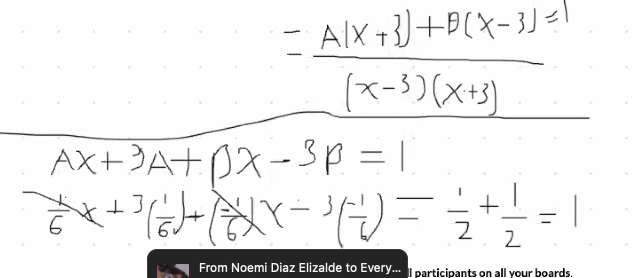 = A(x+3)+B(x-3) = 1
(x-3)(x+3)
Ax+3A+Bx-3B = 1
1/6 x + 3(1/6) + (-1/6)x - 3(-1/6) = 1/2 + 1/2 = 1
From Noemi Diaz Elizalde to Every...
l participants on all your boards.